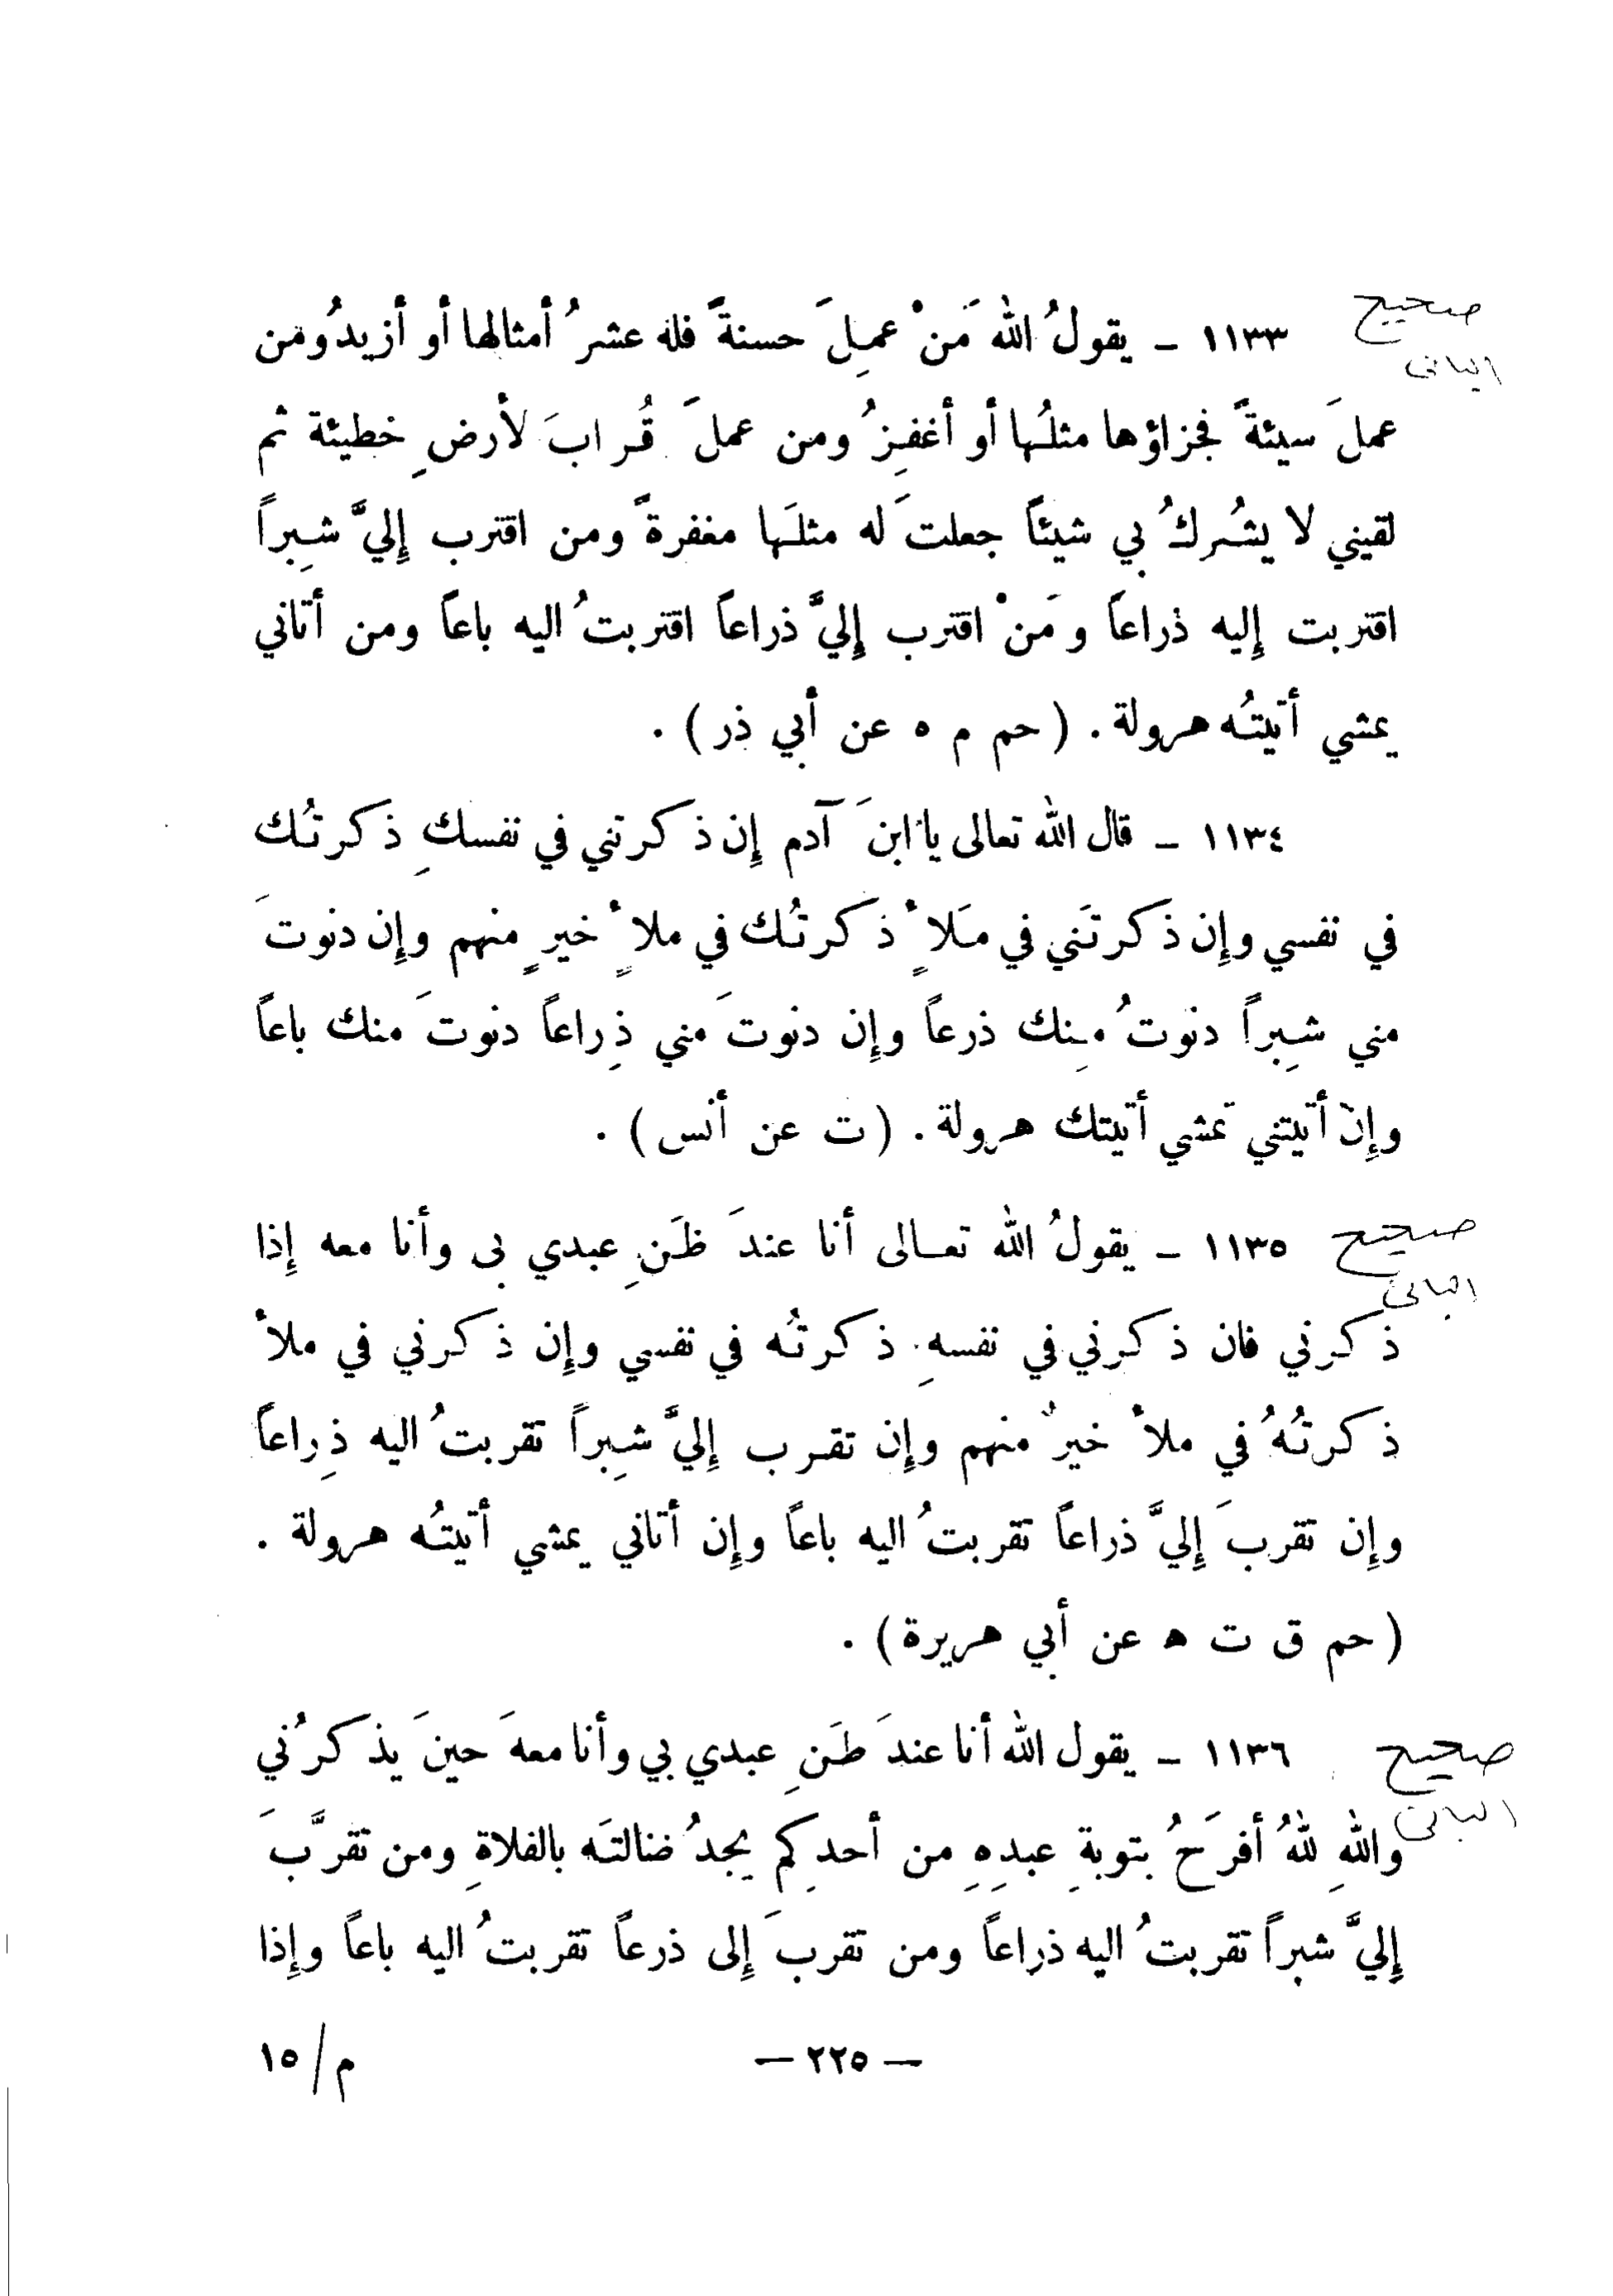 صحيح
الباني
١١٣٣ ـ يقولُ الله مَنْ عمِلَ حسنةً فله عشرُ أمثالها أو أزيدُ ومن
عملَ سيئةً فجزاؤها مثلُها أو أغفِرُ ومن عملَ قُرابَ لأرضِ خطيئة ثم
لقيني لا يشُركُ بي شيئاً جعلت َ له مثلَها مغفرةً ومن اقترب إِليَّ شِبراً
اقتربت إِليه ذراعاً ومَنْ اقترب إِليَّ ذراعاً اقتربتُ اليه باعاً ومن أتاني
يمشي أتيتُه هرولة . ( حم م ه عن أبي ذر ) .
١١٣٤ ـ قال الله تعالى يا ابنَ آدم إِن ذكرتني في نفسكِ ذكرتُك
في نفسي وإِن ذكرتَني في مَلأٍ ذكرتُك في ملأٍ خيرٍ منهم وإِن دنوتَ
مني شِبراً دنوتُ مِنك ذرعاً وإِن دنوتَ مني ذِراعاً دنوتَ منك باعاً
وإِن أتيتني تمشي أتيتك هرولة . ( ت عن أنس ) .
صحيح
الباني
١١٣٥ ـ يقولُ الله تعالى أنا عندَ ظَنِ عبدي بى وأنا معه إِذا
ذكرني فان ذكرني في نفسهِ ذكرتُه في نفسي وإِن ذكرني في ملأ
ذكرتُهُ في ملأ خيرٌ منهم وإِن تقرب إِليَّ شِبراً تقربتُ اليه ذِراعاً
وإِن تقربَ إِليَّ ذراعاً تقربتُ اليه باعاً وإِن أتاني يمشي أتيتُه هرولة .
( حم ق ت ه عن أبي هريرة ) .
صحيح
البانى
١١٣٦ ـ يقول الله أنا عندَ ظَنِ عبدي بي وأنا معهَ حينَ يذكرُني
واللهِ للهُ أفرَحُ بتوبةِ عبدِهِ من أحدكِم يجدُ ضالتَه بالفلاةِ ومن تقرَّبَ
إِليَّ شبراً تقربتُ اليه ذراعاً ومن تقربَ إِلى ذرعاً تقربتُ اليه باعاً وإِذا
— ٢٢٥ —
م/١٥